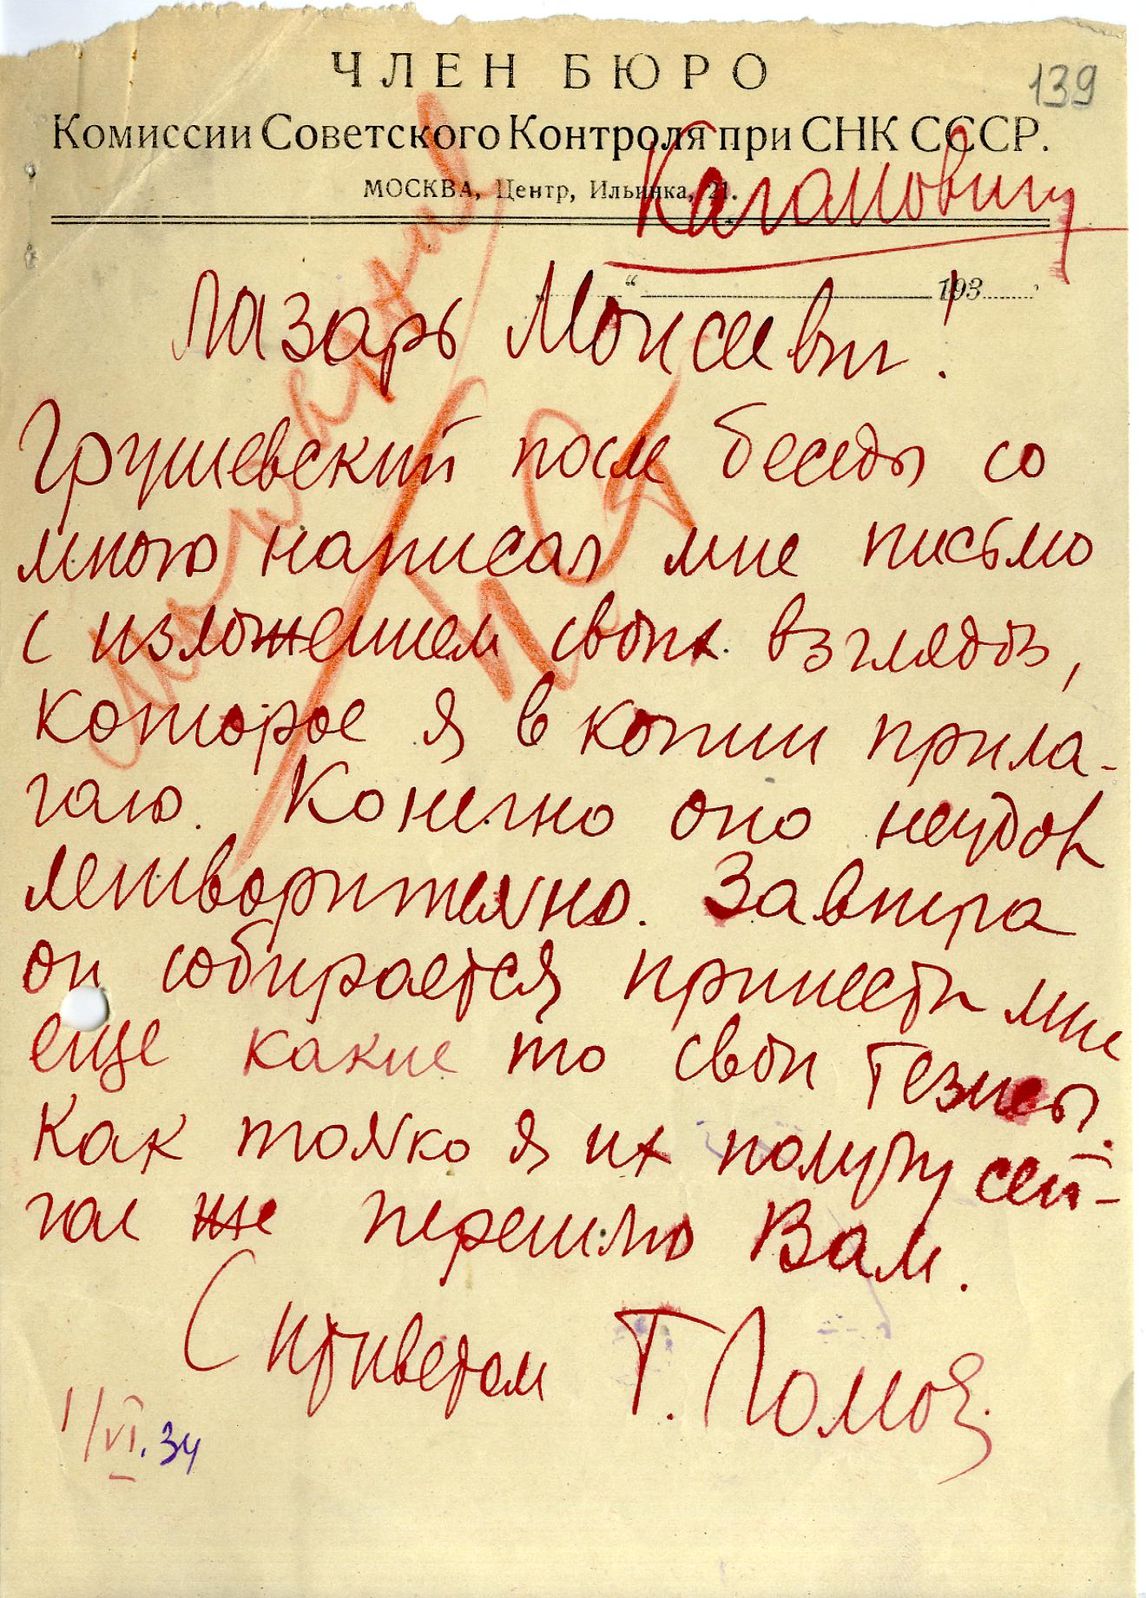 139
ЧЛЕН БЮРО
Комиссии Советского Контроля при СНК СССР.
МОСКВА, Центр, Ильинка, 21.
Кагановичу
" 193
Лазарь Моисеевич!
Грушевский после беседы со
мною написал мне письмо
с изложением своих взглядов,
которое я в копии прила-
гаю. Конечно оно неудов
летворительно. Завтра
он собирается принести мне
еще какие то свои тезисы.
Как только я их получу сей-
час же перешлю Вам.
С приветом Г. Ломов.
1/VI.34